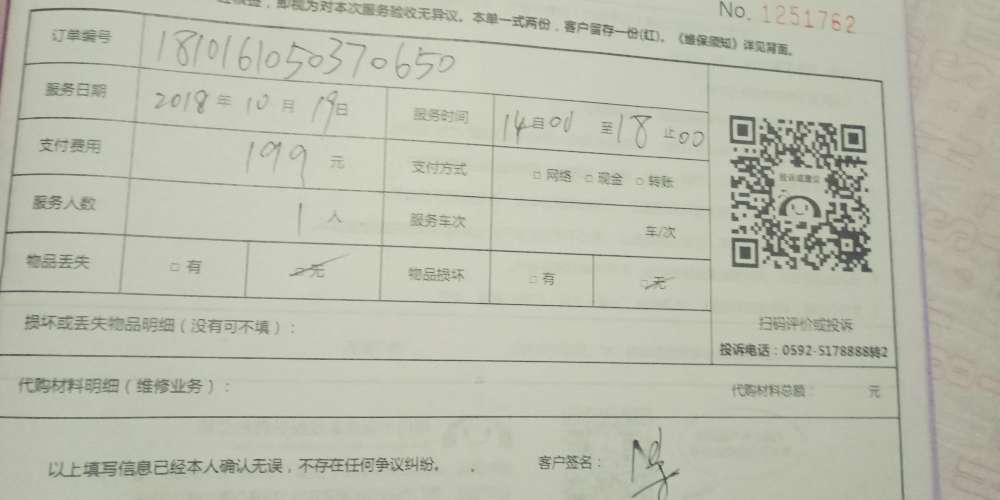 即视为对本次服务验收无异议。本单一式两份，客户留存一份(红)。《维保须知》详见背面。
No. 1251762
订单编号 181016105037 0650
服务日期 2018 年 10 月 19 日 服务时间 14 自 00 至 18 止 00
支付费用 199 元 支付方式 □ 网络 □ 现金 □ 转账
服务人数 1 人 服务车次 车/次
物品丢失 □ 有 □ 无 物品损坏 □ 有 □ 无
投诉或建议
扫码评价或投诉
投诉电话：0592-5178888转2
损坏或丢失物品明细（没有可不填）：
代购材料明细（维修业务）： 代购材料总额： 元
以上填写信息已经本人确认无误，不存在任何争议纠纷。 客户签名：